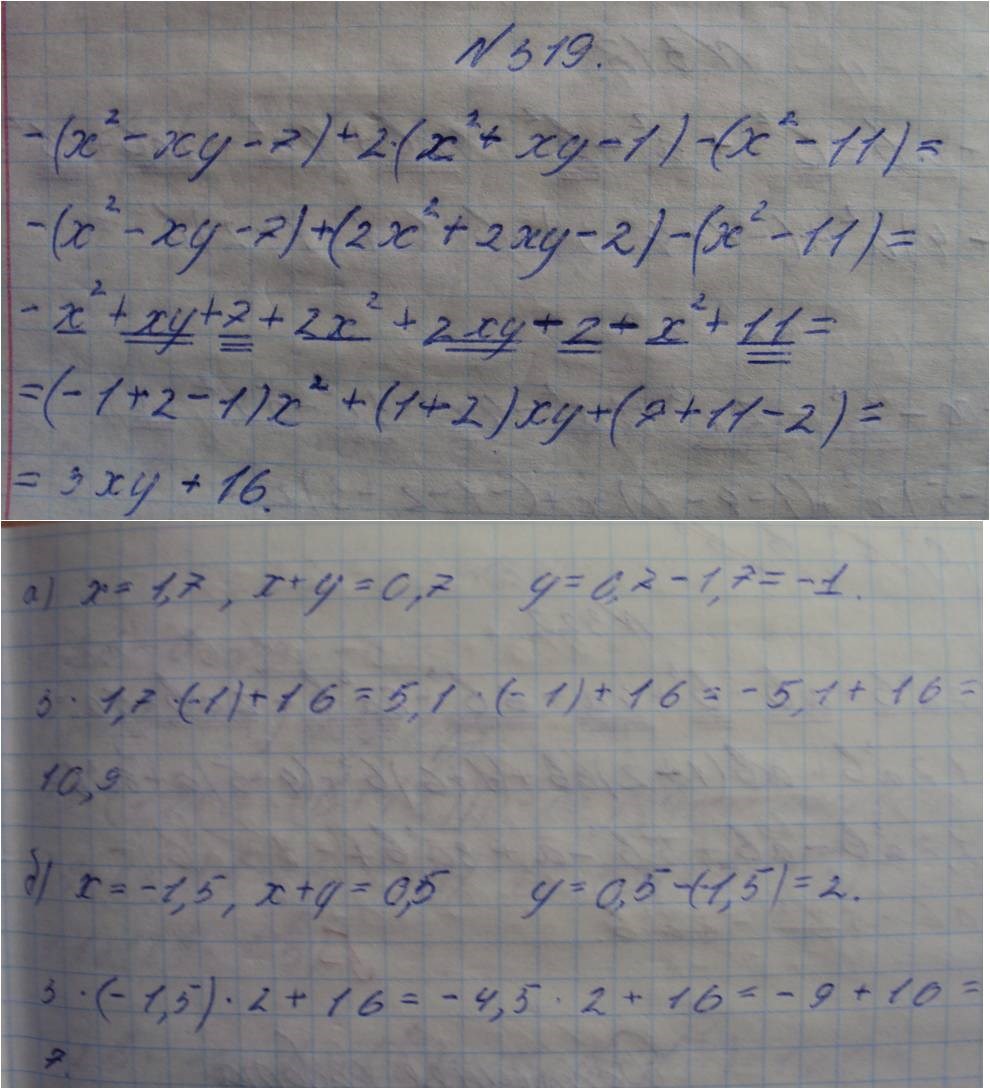 N 319.
-(x² - xy - 7) + 2·(x² + xy - 1) - (x² - 11) =
-(x² - xy - 7) + (2x² + 2xy - 2) - (x² - 11) =
- x² + xy + 7 + 2x² + 2xy + 2 + x² + 11 =
= (-1 + 2 - 1)x² + (1 + 2)xy + (7 + 11 - 2) =
= 3xy + 16.
а) x = 1,7, x + y = 0,7 y = 0,7 - 1,7 = -1.
3 · 1,7 · (-1) + 16 = 5,1 · (-1) + 16 = -5,1 + 16 =
10,9
б) x = -1,5, x + y = 0,5 y = 0,5 - (-1,5) = 2.
3 · (-1,5) · 2 + 16 = -4,5 · 2 + 16 = -9 + 16 =
7.